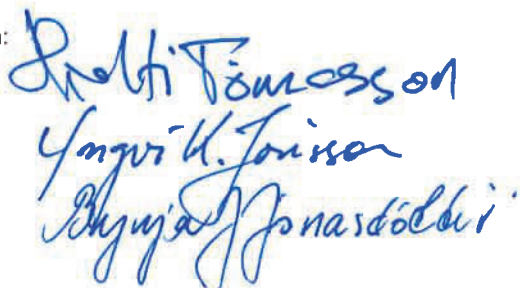 :
Tómasson
Yngvi K. Jónsson
Brynja J Jónasdóttir